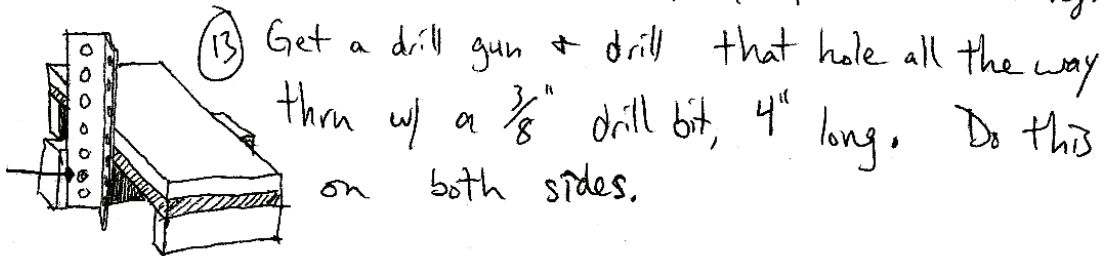 (13) Get a drill gun & drill that hole all the way
thru w/ a 3/8" drill bit, 4" long. Do this
on both sides.